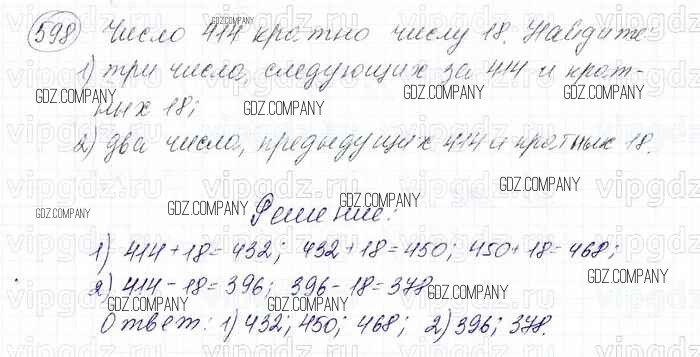 598 Число 414 кратно числу 18. Найдите:
1) три числа, следующих за 414 и крат-
ных 18;
2) два числа, предыдущих 414 и кратных 18.
Решение:
1) 414 + 18 = 432; 432 + 18 = 450; 450 + 18 = 468;
2) 414 - 18 = 396; 396 - 18 = 378
Ответ: 1) 432; 450; 468; 2) 396; 378.